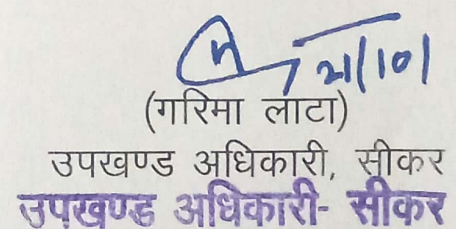 21/10/
(गरिमा लाटा)
उपखण्ड अधिकारी, सीकर
उपखण्ड अधिकारी- सीकर